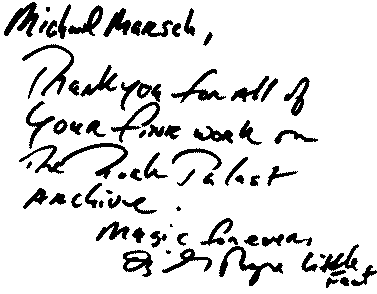 Michael Marsch,
Thank you for all of
your fine work on
The Rock Palast
Archive.
Magic forever,
Roger Little
Feat